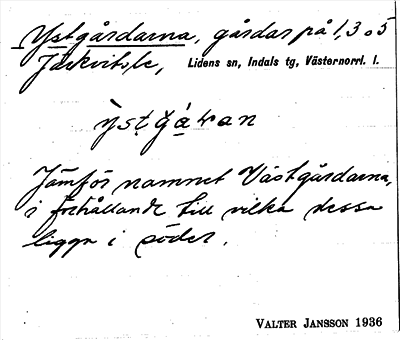 Ystgårdarna, gårdar på 1, 3 o 5
Järkvitsle, Lidens sn, Indals tg, Västernorrl. l.
ỳstgá̱ran
Jämför namnet Västgårdarna,
i förhållande till vilka dessa
ligga i söder.
VALTER JANSSON 1936